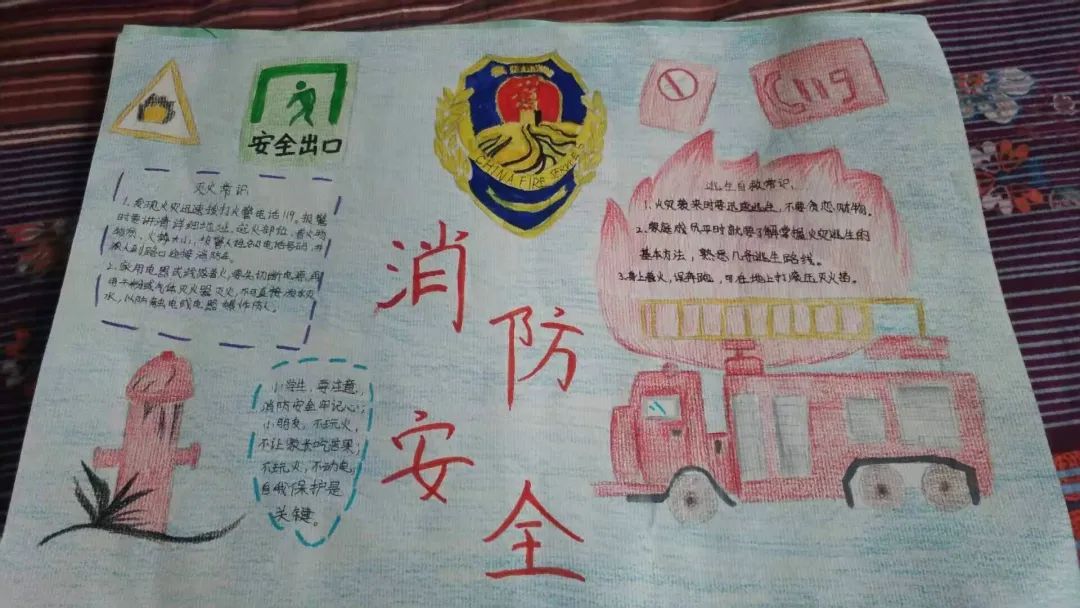 安全出口
CHINA FIRE SERVICE
119
灭火常识:
1.发现火灾迅速拨打火警电话119。报警
时要讲清详细地址、起火部位、着火
物质、火势大小、报警人姓名及电话号码,并
派人到路口迎接消防车。
2.家用电器或线路着火,要先切断电源,再
用干粉或气体灭火器灭火,不可直接泼水灭
火,以防触电或电器爆炸伤人。
逃生自救常识:
1.火灾袭来时要迅速逃生,不要贪恋财物。
2.家庭成员平时就要了解掌握火灾逃生的
基本方法,熟悉几条逃生路线。
3.身上着火,误奔跑,可在地上打滚压灭火苗。
消
防
安
全
小学生,要注意,
消防安全牢记心;
小朋友,不玩火,
不让家长吃苦果;
不玩火,不动电,
自我保护是
关键。